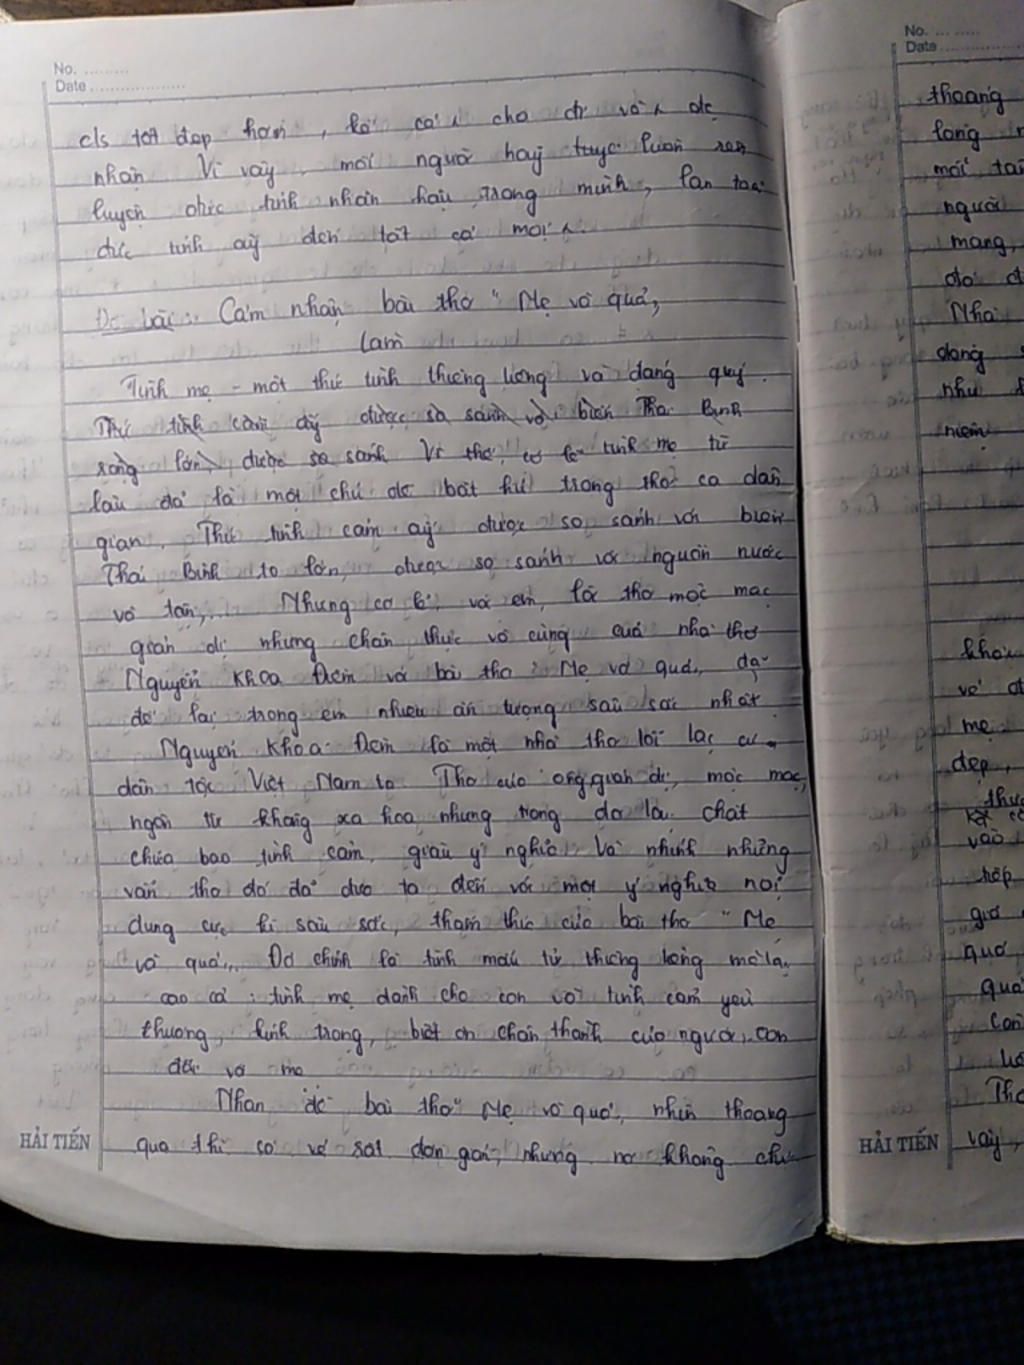 No. .........
Date ...................
cls tốt đẹp hơn, kể cả cho đi và
nhận Vì vậy, mỗi người hãy rèn
luyện đức tính nhân hậu trong mình, lan toả
đức tính ấy đến tất cả mọi
Đề bài: Cảm nhận bài thơ "Mẹ và quả"
Làm
Tình mẹ - một thứ tình thiêng liêng và đáng quý.
Thứ tình cảm ấy được so sánh với biển Thái Bình
rộng lớn, được so sánh Vì thế, có lẽ tình mẹ từ
lâu đã là một chủ đề bất hủ trong thơ ca dân
gian. Thứ tình cảm ấy được so sánh với biển
Thái Bình to lớn, được so sánh với nguồn nước
vô tận,... Nhưng có lẽ, với em, lời thơ mộc mạc
giản dị nhưng chân thực vô cùng của nhà thơ
Nguyễn Khoa Điềm với bài thơ "Mẹ và quả" đã
để lại trong em nhiều ấn tượng sâu sắc nhất.
Nguyễn Khoa Điềm là một nhà thơ lỗi lạc của
dân tộc Việt Nam ta. Thơ của ông giản dị, mộc mạc,
ngôn từ không xa hoa nhưng trong đó lại chất
chứa bao tình cảm, giàu ý nghĩa. Và chính những
vần thơ đó đã đưa ta đến với một ý nghĩa nội
dung cực kì sâu sắc, thấm thía của bài thơ "Mẹ
và quả". Đó chính là tình mẫu tử thiêng liêng mà
cao cả: tình mẹ dành cho con với tình cảm yêu
thương, kính trọng, biết ơn chân thành của người con
đối với mẹ
Nhan đề bài thơ "Mẹ và quả", nhìn thoáng
qua thì có vẻ rất đơn giản, nhưng nó không
HẢI TIẾN
No. ... .....
Date ..............
thoáng
lòng
mới
người
mang,
do
Nhà
dạng
như
niệm
khó
về
mẹ
đẹp,
vào
quả
quả
con
Thơ
HẢI TIẾN
vậy,